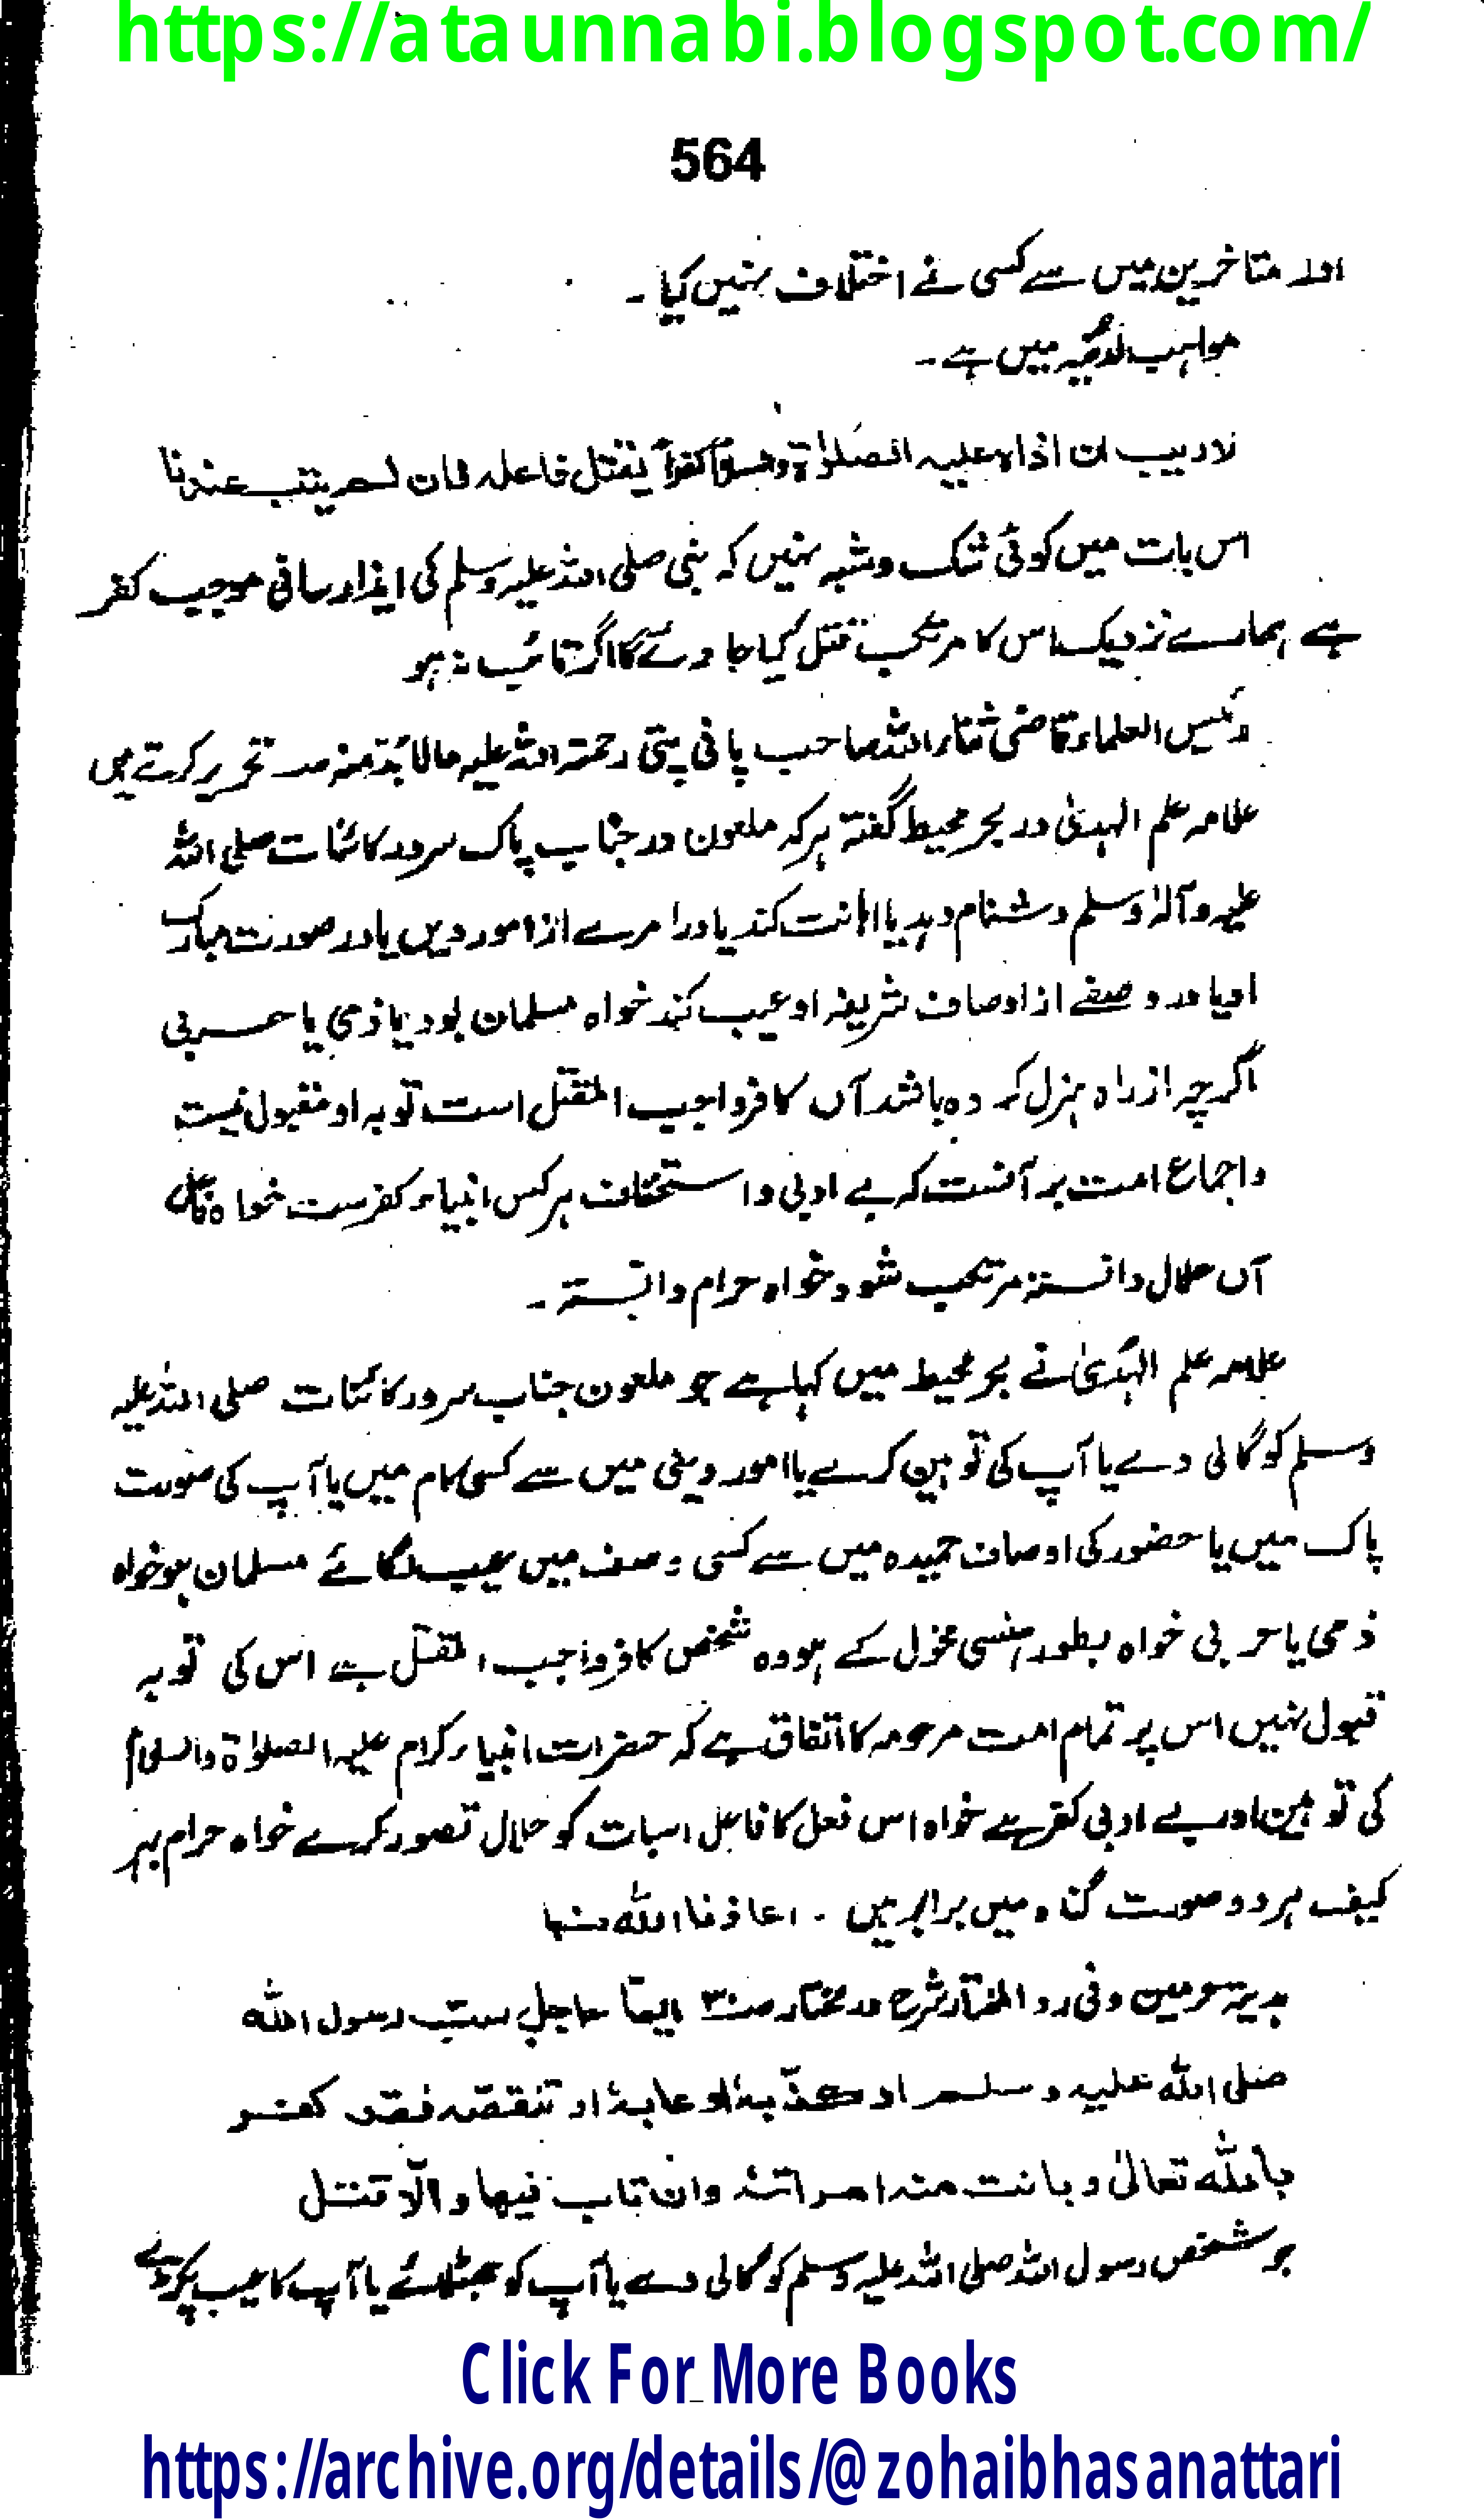 https://ataunnabi.blogspot.com/
564
اور متاخرین میں سے کسی نے اختلاف نہیں کیا ۔
مواہب لدنیہ میں ہے ۔
لا ریب ان اذاہ علیہ الصلوٰۃ والسلام کفراً یقتل فاعلہ فان لم یتب عندنا
اس بات میں کوئی شک و شبہ نہیں کہ نبی صلی اللہ علیہ وسلم کی ایذا رسانی موجب کفر
ہے ہمارے نزدیک اس کا مرتکب قتل کیا جاوئے گا اگر تائب نہ ہو
رئیس العلماء قاضی ثناء اللہ صاحب پانی پتی رحمۃ اللہ علیہ مالا بد منہ میں تحریر کرتے ہیں
علامہ علم الہدیٰ در بحر محیط گفتہ ہر کہ ملعون در جناب پاک سرور کائنات صلی اللہ
علیہ وآلہٖ وسلم دشنام دہد یا اہانت کند یا در امرے از امور دیں یا در صورت مبارک
او یا در وصفے از اوصاف شریفہ او عیب کند خواہ مسلمان بود یا ذمی یا حربی
اگرچہ از راہ ہزل کردہ باشد آں کافر واجب القتل است توبہ او مقبول نیست
واجماع امت بر آنست کہ بے ادبی و استخفاف ہر کس انبیاء کفر ست خواہ فاعل
آں حلال دانستہ مرتکب شود خواہ حرام دانستہ ۔
علامہ علم الہدیٰ نے بحر محیط میں کہا ہے جو ملعون جناب سرور کائنات صلی اللہ علیہ
وسلم کو گالی دے یا آپ کی توہین کرے یا امور دینی میں سے کسی کام میں یا آپ کی صورت
پاک میں یا حضور کی اوصاف حمیدہ میں سے کسی وصف میں عیب لگائے مسلمان ہو خواہ
ذمی یا حربی خواہ بطور ہنسی مخول کے ہو وہ شخص کافر واجب القتل ہے اس کی توبہ
قبول نہیں اس پر تمام امت مرحومہ کا اتفاق ہے کہ حضرات انبیاء کرام علیہ الصلوٰۃ والسلام
کی توہین اور بے ادبی کفر ہے خواہ اس فعل کا فاعل اسبات کو حلال تصور کرے خواہ حرام بہر
کیف ہر دو صورت گناہ میں برابر ہیں ۔ اعاذنا اللہ منہا
ہدیہ حرمین وفی رد المختار شرح در مختار ایما رجل سب رسول اللہ
صلی اللہ علیہ وسلم او کذّبہٗ او عابہٗ او تنقصہ فقد کفر
باللہ تعالیٰ و بانت منہ امراتہٗ وان تاب فبہا والّا قتل
جو شخص رسول اللہ صلی اللہ علیہ وسلم کو گالی دے یا آپ کو جھٹلائے یا آپ کا عیب پکڑے
Click For More Books
https://archive.org/details/@zohaibhasanattari